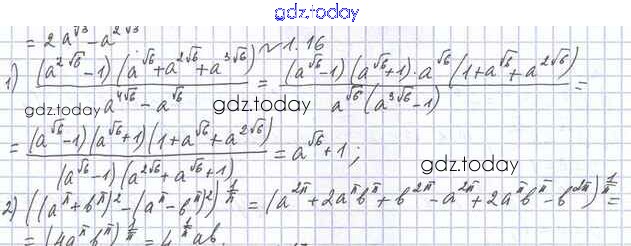 gdz.today
= 2a^√3 − a^(2√3)
~ 1.16
1) ((a^(2√6) − 1)(a^√6 + a^(2√6) + a^(3√6))) / (a^(4√6) − a^√6) = ((a^√6 − 1)(a^√6 + 1) · a^√6 (1 + a^√6 + a^(2√6))) / (a^√6 (a^(3√6) − 1)) =
gdz.today
gdz.today
= ((a^√6 − 1)(a^√6 + 1)(1 + a^√6 + a^(2√6))) / ((a^√6 − 1)(a^(2√6) + a^√6 + 1)) = a^√6 + 1;
gdz.today
2) ((a^π + b^π)² − (a^π − b^π)²)^(1/π) = (a^(2π) + 2a^π b^π + b^(2π) − a^(2π) + 2a^π b^π − b^(2π))^(1/π) =
= (4a^π b^π)^(1/π) = 4^(1/π) ab.